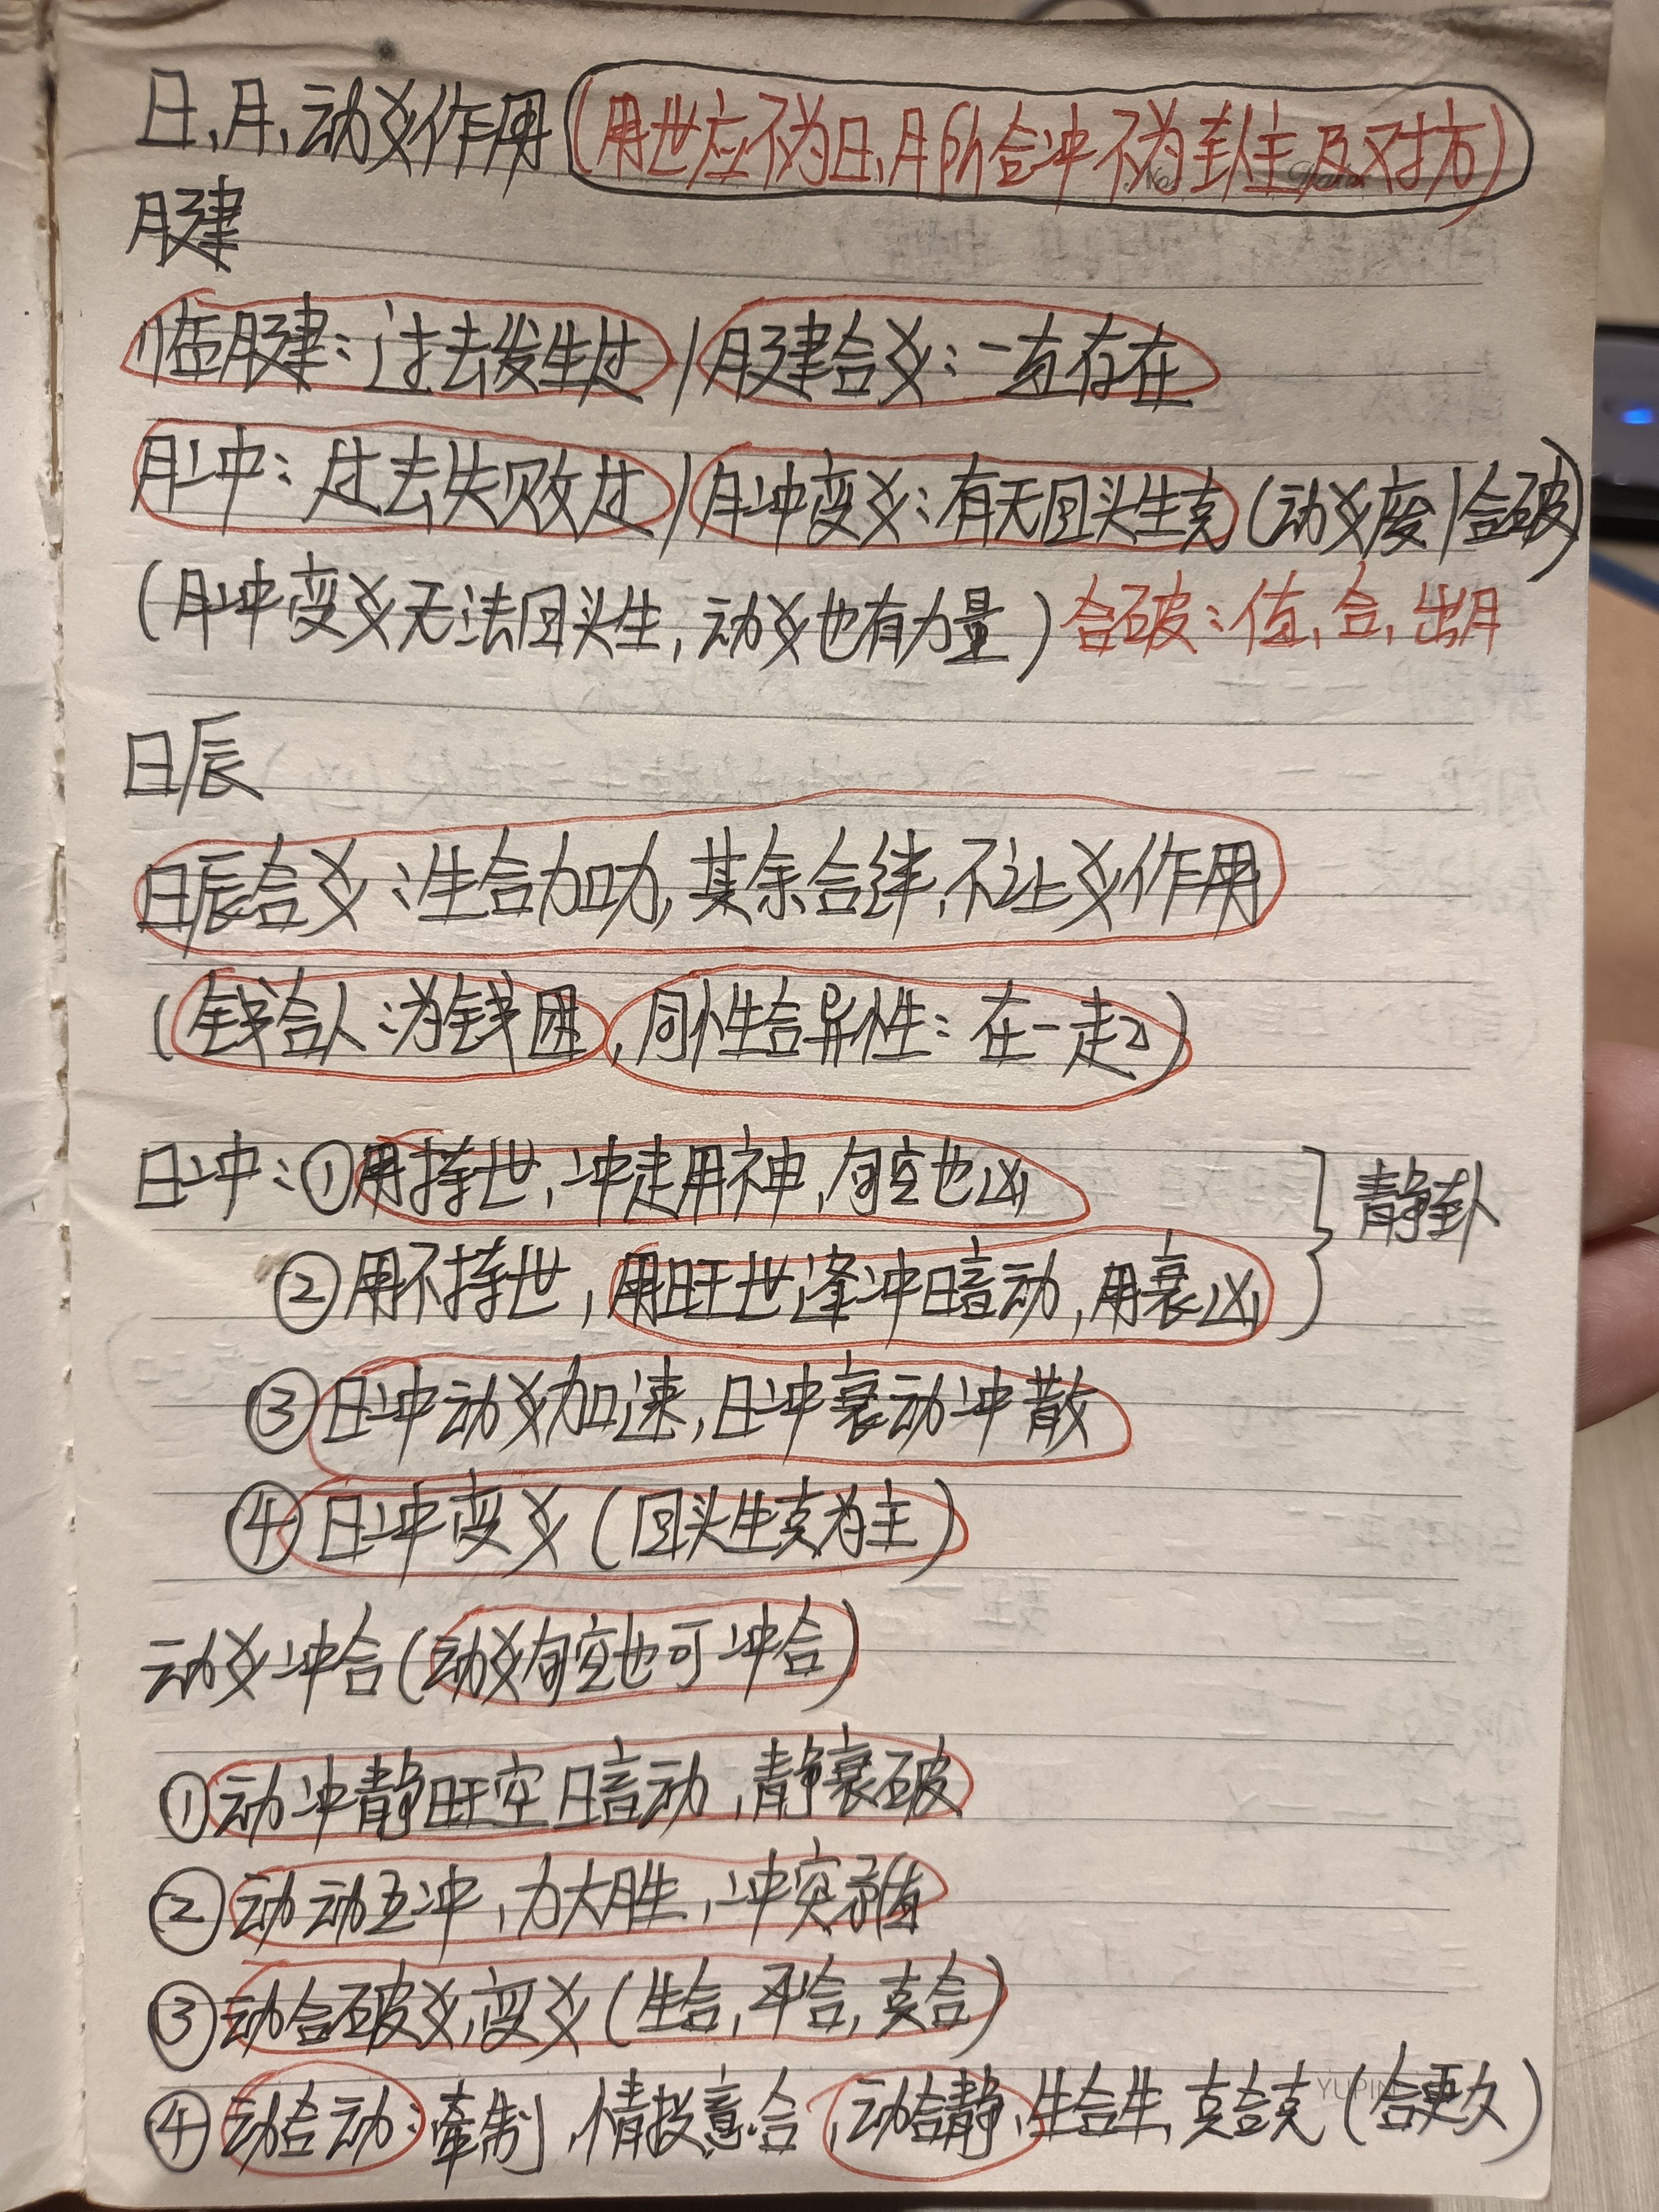 日、月、动爻作用(用世应不为日、月所合冲不为卦主及对方)
月建
临月建:过去发生过/月建合爻:一直存在
月冲:过去失败过/月冲变爻:有无回头生克(动爻废/合破)
(月冲变爻无法回头生,动爻也有力量)合破:值、合、出月
日辰
日辰合爻:生合加力,其余合绊,不让爻作用
(钱合人:为钱困,同性合异性:在一起)
日冲:①用持世,冲走用神,旬空也凶
②用不持世,用旺世逢冲暗动,用衰凶
静卦
③日冲动爻加速,日冲衰动冲散
④日冲变爻(回头生克为主)
动爻冲合(动爻旬空也可冲合)
①动冲静旺空暗动,静衰破
②动动互冲,力大胜,冲突
③动合破爻,变爻(生合,平合,克合)
④动合动:牵制,情投意合,动合静,生合生,克合克(合更久)
YUPIN